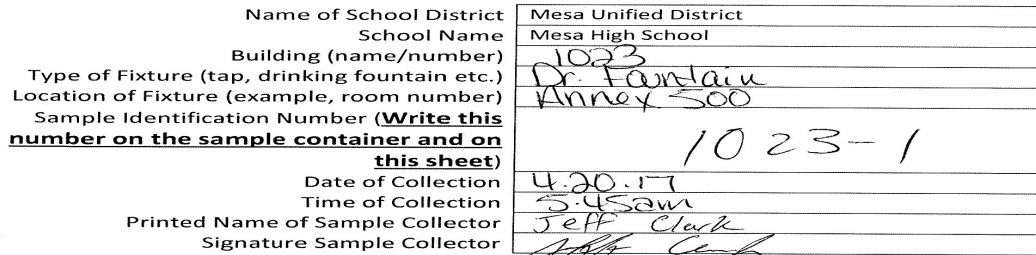 Name of School District Mesa Unified District
School Name Mesa High School
Building (name/number) 1023
Type of Fixture (tap, drinking fountain etc.) Dr. Fountain
Location of Fixture (example, room number) Annex 500
Sample Identification Number (Write this
number on the sample container and on
this sheet) 1023-1
Date of Collection 4.20.17
Time of Collection 5:45am
Printed Name of Sample Collector Jeff Clark
Signature Sample Collector